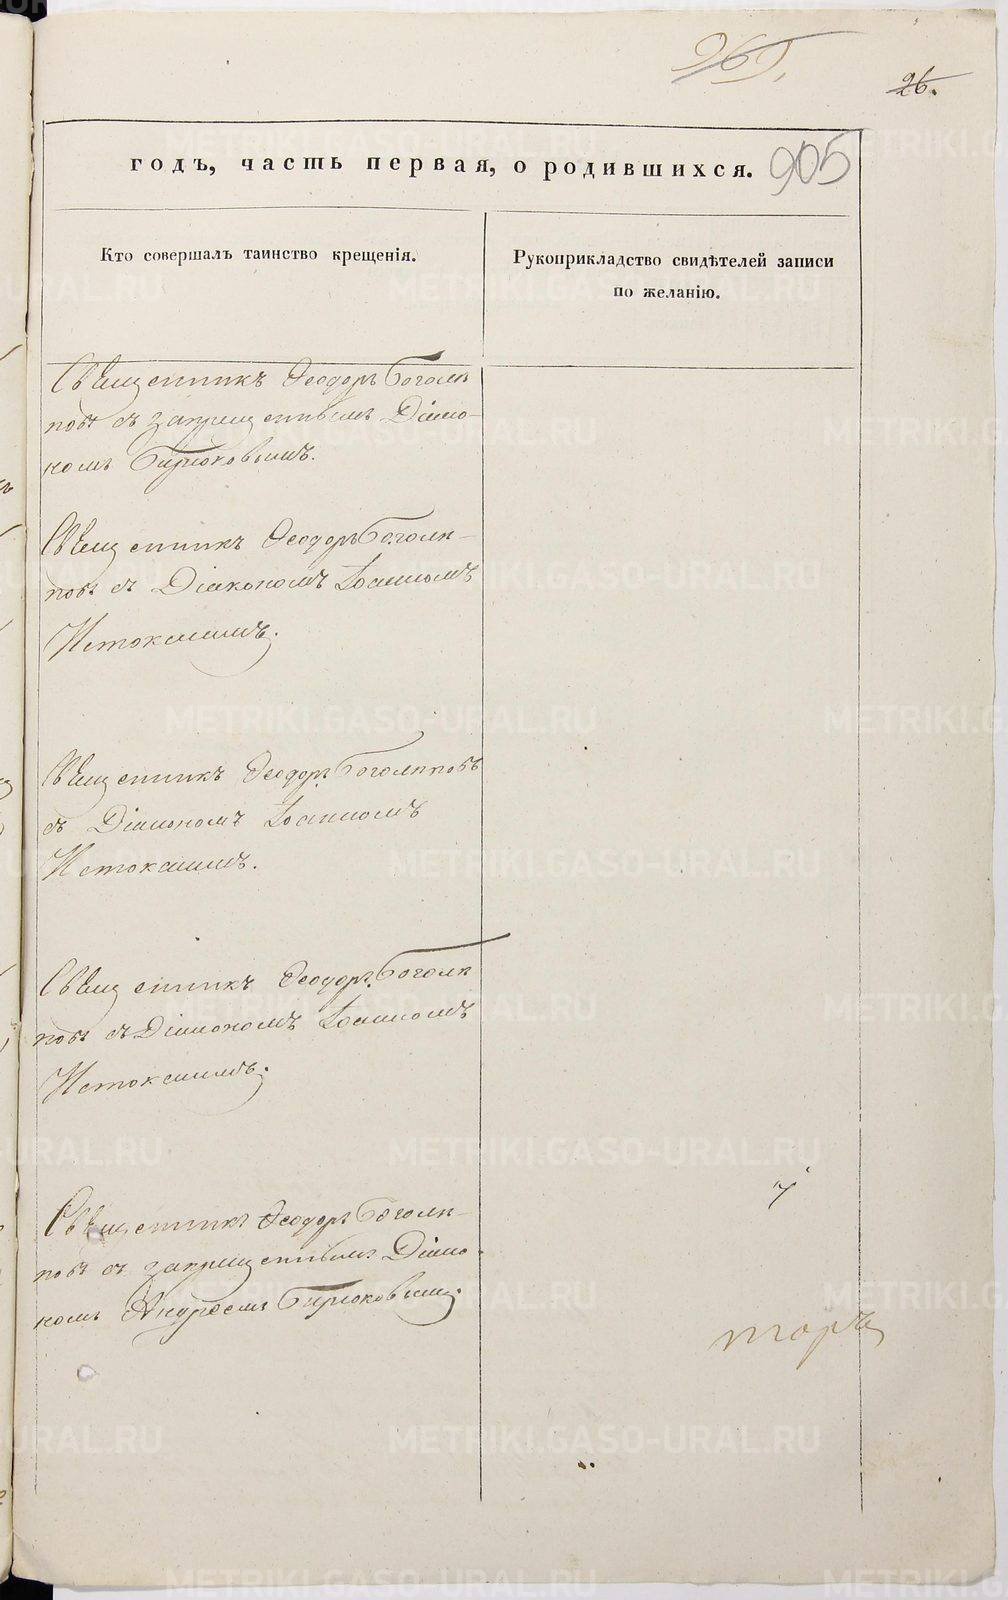 969.
26.
годъ, часть первая, о родившихся.
905
Кто совершалъ таинство крещенія.
Рукоприкладство свидѣтелей записи
по желанію.
Священникъ Ѳеодоръ Боголѣ
повъ съ запрещеннымъ Діако-
номъ Бирюковымъ.
Священникъ Ѳеодоръ Боголѣ-
повъ съ Діакономъ Іоанномъ
Истокскимъ.
Священникъ Ѳеодоръ Боголѣповъ
съ Діакономъ Іоанномъ
Истокскимъ.
Священникъ Ѳеодоръ Боголѣ
повъ съ Діакономъ Іоанномъ
Истокскимъ.
Священникъ Ѳеодоръ Боголѣ-
повъ съ запрещеннымъ Діако-
номъ Андреемъ Бирюковымъ.
METRIKI.GASO-URAL.RU